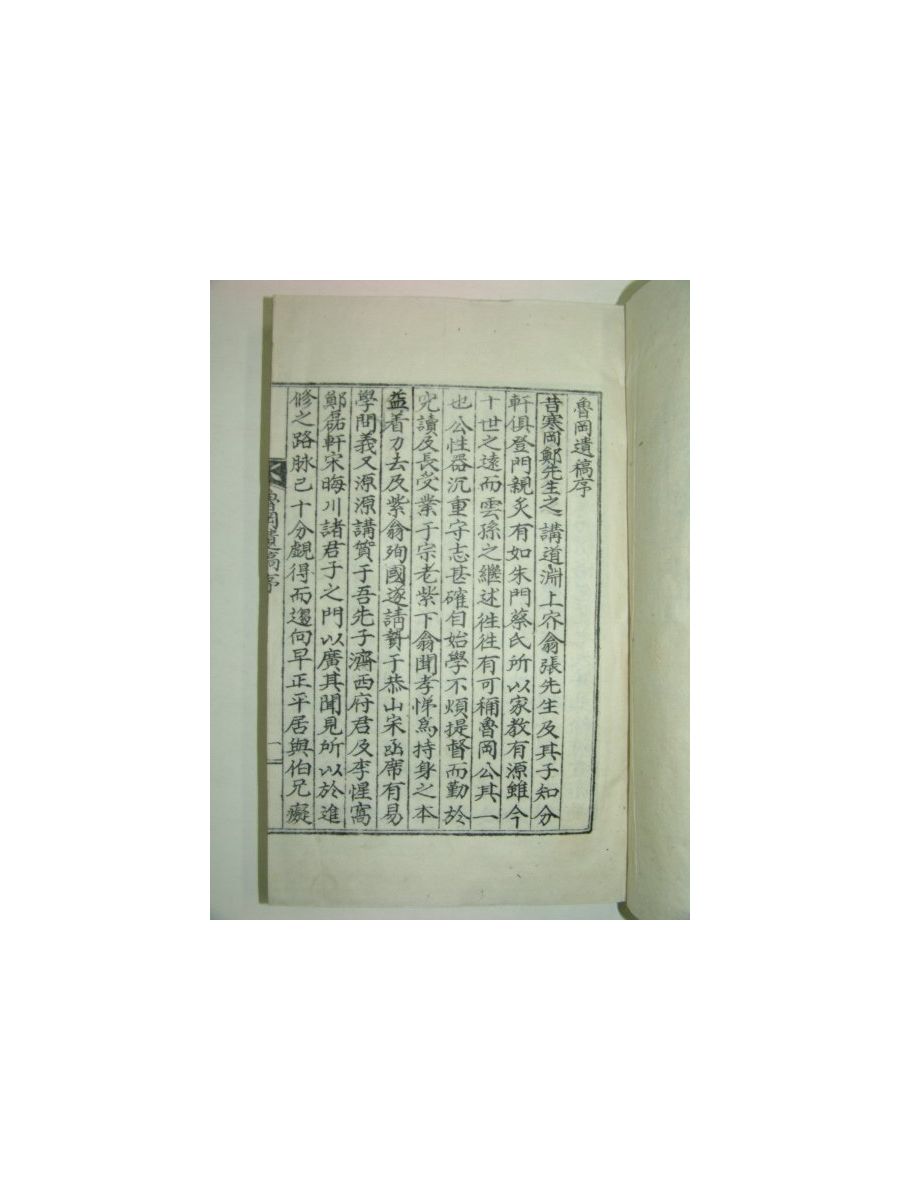 魯岡遺稿序
昔寒岡鄭先生之講道淵上夰翁張先生及其子知分
軒俱登門親炙有如朱門蔡氏所以家敎有源雖今
十世之遠而雲孫之繼述徃徃有可稱魯岡公其一
也公性器沉重守志甚確自始學不煩提督而勤於
究讀及長受業于宗老紫下翁聞孝悌爲持身之本
益着力去及紫翁殉國遂請贄于恭山宋函席有易
學問義又源源講質于吾先子濟西府君及李惺窩
鄭磊軒宋晦川諸君子之門以廣其聞見所以於進
修之路脉已十分覷得而趨向早正平居與伯兄癡
魯岡遺稿序
一